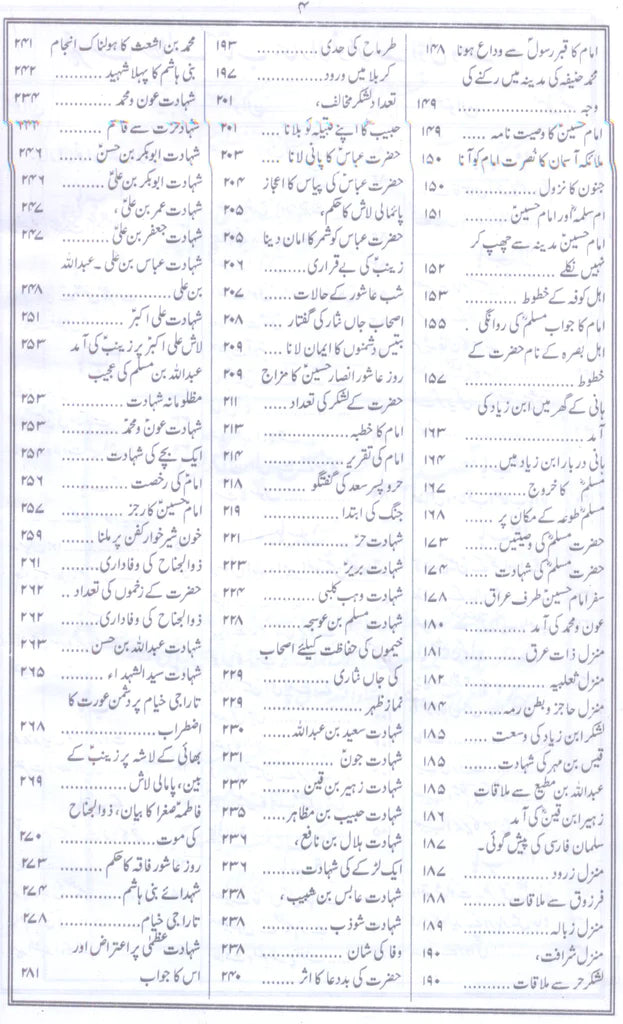 ۴
امام کا قبر رسولؐ سے وداع ہونا ۱۴۸
محمد حنیفہ کی مدینہ میں رکنے کی
وجہ .................... ۱۴۹
امام حسینؑ کا وصیت نامہ ..... ۱۴۹
ملائکہ آسمان کا نصرت امام کو آنا ۱۵۰
جنوں کا نزول .............. ۱۵۰
ام سلمہؓ اور امام حسینؑ ۱۵۱
امام حسینؑ مدینہ سے چھپ کر
نہیں نکلے ................ ۱۵۲
اہل کوفہ کے خطوط ........... ۱۵۳
امام کا جواب مسلمؑ کی روانگی . ۱۵۵
اہل بصرہ کے نام حضرت کے
خطوط .................. ۱۵۷
ہانی کے گھر میں ابن زیاد کی
آمد .................... ۱۶۳
ہانی دربار ابن زیاد میں ........ ۱۶۴
مسلمؑ کا خروج ............. ۱۶۷
مسلمؑ طوعہ کے مکان پر ....... ۱۶۸
حضرت مسلمؑ کی وصیتیں ....... ۱۷۳
حضرت مسلمؑ کی شہادت ...... ۱۷۴
سفر امام حسینؑ طرف عراق ۱۷۸
عون و محمد کی آمد ............ ۱۸۰
منزل ذات عرق ............ ۱۸۱
منزل ثعلبیہ ............... ۱۸۲
منزل حاجز و بطن رمہ ........ ۱۸۴
لشکر ابن زیاد کی وسعت ..... ۱۸۵
قیس بن مہر کی شہادت ....... ۱۸۵
عبداللہ بن مطیع سے ملاقات ۱۸۵
زہیر ابن قینؓ کی آمد ۱۸۶
سلمان فارسی کی پیش گوئی۔ ۱۸۷
منزل زرود ............... ۱۸۷
فرزوق سے ملاقات ........ ۱۸۸
منزل زبالہ ............... ۱۸۹
منزل شرافت، ............. ۱۹۰
لشکر حر سے ملاقات .......... ۱۹۰
طرماح کی حدی ............ ۱۹۳
کربلا میں ورود ............. ۱۹۷
تعداد لشکر مخالف، ۲۰۱
حبیب کا اپنے قبیلہ کو بلانا .... ۲۰۱
حضرت عباسؑ کا پانی لانا .... ۲۰۳
حضرت عباسؑ کی پیاس کا اعجاز ۲۰۴
پائمالی لاش کا حکم، .......... ۲۰۵
حضرت عباس کو شمر کا امان دینا ۲۰۵
زینبؑ کی بے قراری ......... ۲۰۶
شب عاشور کے حالات ...... ۲۰۷
اصحاب جاں نثار کی گفتار .... ۲۰۸
بتیس دشمنوں کا ایمان لانا .... ۲۰۹
روز عاشور انصار حسینؑ کا مزاج ۲۰۹
حضرت کے لشکر کی تعداد ..... ۲۱۱
امام کا خطبہ ............... ۲۱۳
امام کی تقریر .............. ۲۱۴
حر و پسر سعد کی گفتگو ........ ۲۱۸
جنگ کی ابتدا ............. ۲۱۹
شہادت حرؑ ............... ۲۲۱
شہادت بریرؑ .............. ۲۲۳
شہادت وہب کلبی ......... ۲۲۴
شہادت مسلم بن عوسجہ ...... ۲۲۸
خیموں کی حفاظت کیلئے اصحاب
کی جاں نثاری ............ ۲۲۹
نماز ظہر ................ ۲۲۹
شہادت سعید بن عبداللہ ۲۳۰
شہادت جونؑ ............. ۲۳۱
شہادت زہیر بن قین ........ ۲۳۴
شہادت حبیب بن مظاہر ..... ۲۳۵
شہادت ہلال بن نافع، ....... ۲۳۶
ایک لڑکے کی شہادت ....... ۲۳۶
شہادت عابس بن شبیب، .... ۲۳۸
شہادت شوذب ............ ۲۳۸
وفا کی شان .............. ۲۳۸
حضرت کی بددعا کا اثر ....... ۲۴۰
محمد بن اشعث کا ہولناک انجام ۲۴۱
بنی ہاشم کا پہلا شہید ......... ۲۴۲
شہادت عون و محمد ........... ۲۳۴
شہادت حضرت قاسم ...........
شہادت ابوبکر بن حسنؑ ۲۴۶
شہادت ابوبکر بن علیؑ ....... ۲۴۶
شہادت عمر بن علیؑ، ........ ۲۴۷
شہادت جعفر بن علیؑ ........ ۲۴۷
شہادت عباس بن علی۔ عبداللہ
بن علی .................. ۲۴۸
شہادت علی اکبرؑ ............ ۲۵۱
لاش علی اکبرؑ پر زینبؑ کی آمد ۲۵۳
عبداللہ بن مسلم کی عجیب
مظلومانہ شہادت ........... ۲۵۳
شہادت عون و محمدؑ ......... ۲۵۳
ایک بچے کی شہادت ......... ۲۵۴
امامؑ کی رخصت ........... ۲۵۶
امام حسینؑ کا رجز .......... ۲۵۷
خون شیر خوار کفن پر ملنا ...... ۲۵۹
ذوالجناح کی وفاداری ....... ۲۶۱
حضرت کے زخموں کی تعداد .. ۲۶۲
ذوالجناح کی وفاداری ....... ۲۶۲
شہادت عبداللہ بن حسن ..... ۲۶۳
شہادت سید الشہداء ........ ۲۶۵
تاراجی خیام پر دشمن عورت کا
اضطراب ................ ۲۶۸
بھائی کے لاشہ پر زینبؑ کے
بین، پامالی لاش ........... ۲۶۹
فاطمہؑ صغرا کا بیان، ذوالجناح
کی موت ................. ۲۷۰
روز عاشور فاقہ کا حکم ........ ۲۷۳
شہدائے بنی ہاشم .......... ۲۷۴
تاراجی خیام .............. ۲۷۸
شہادت عظمیٰ پر اعتراض اور
اس کا جواب ۲۸۱